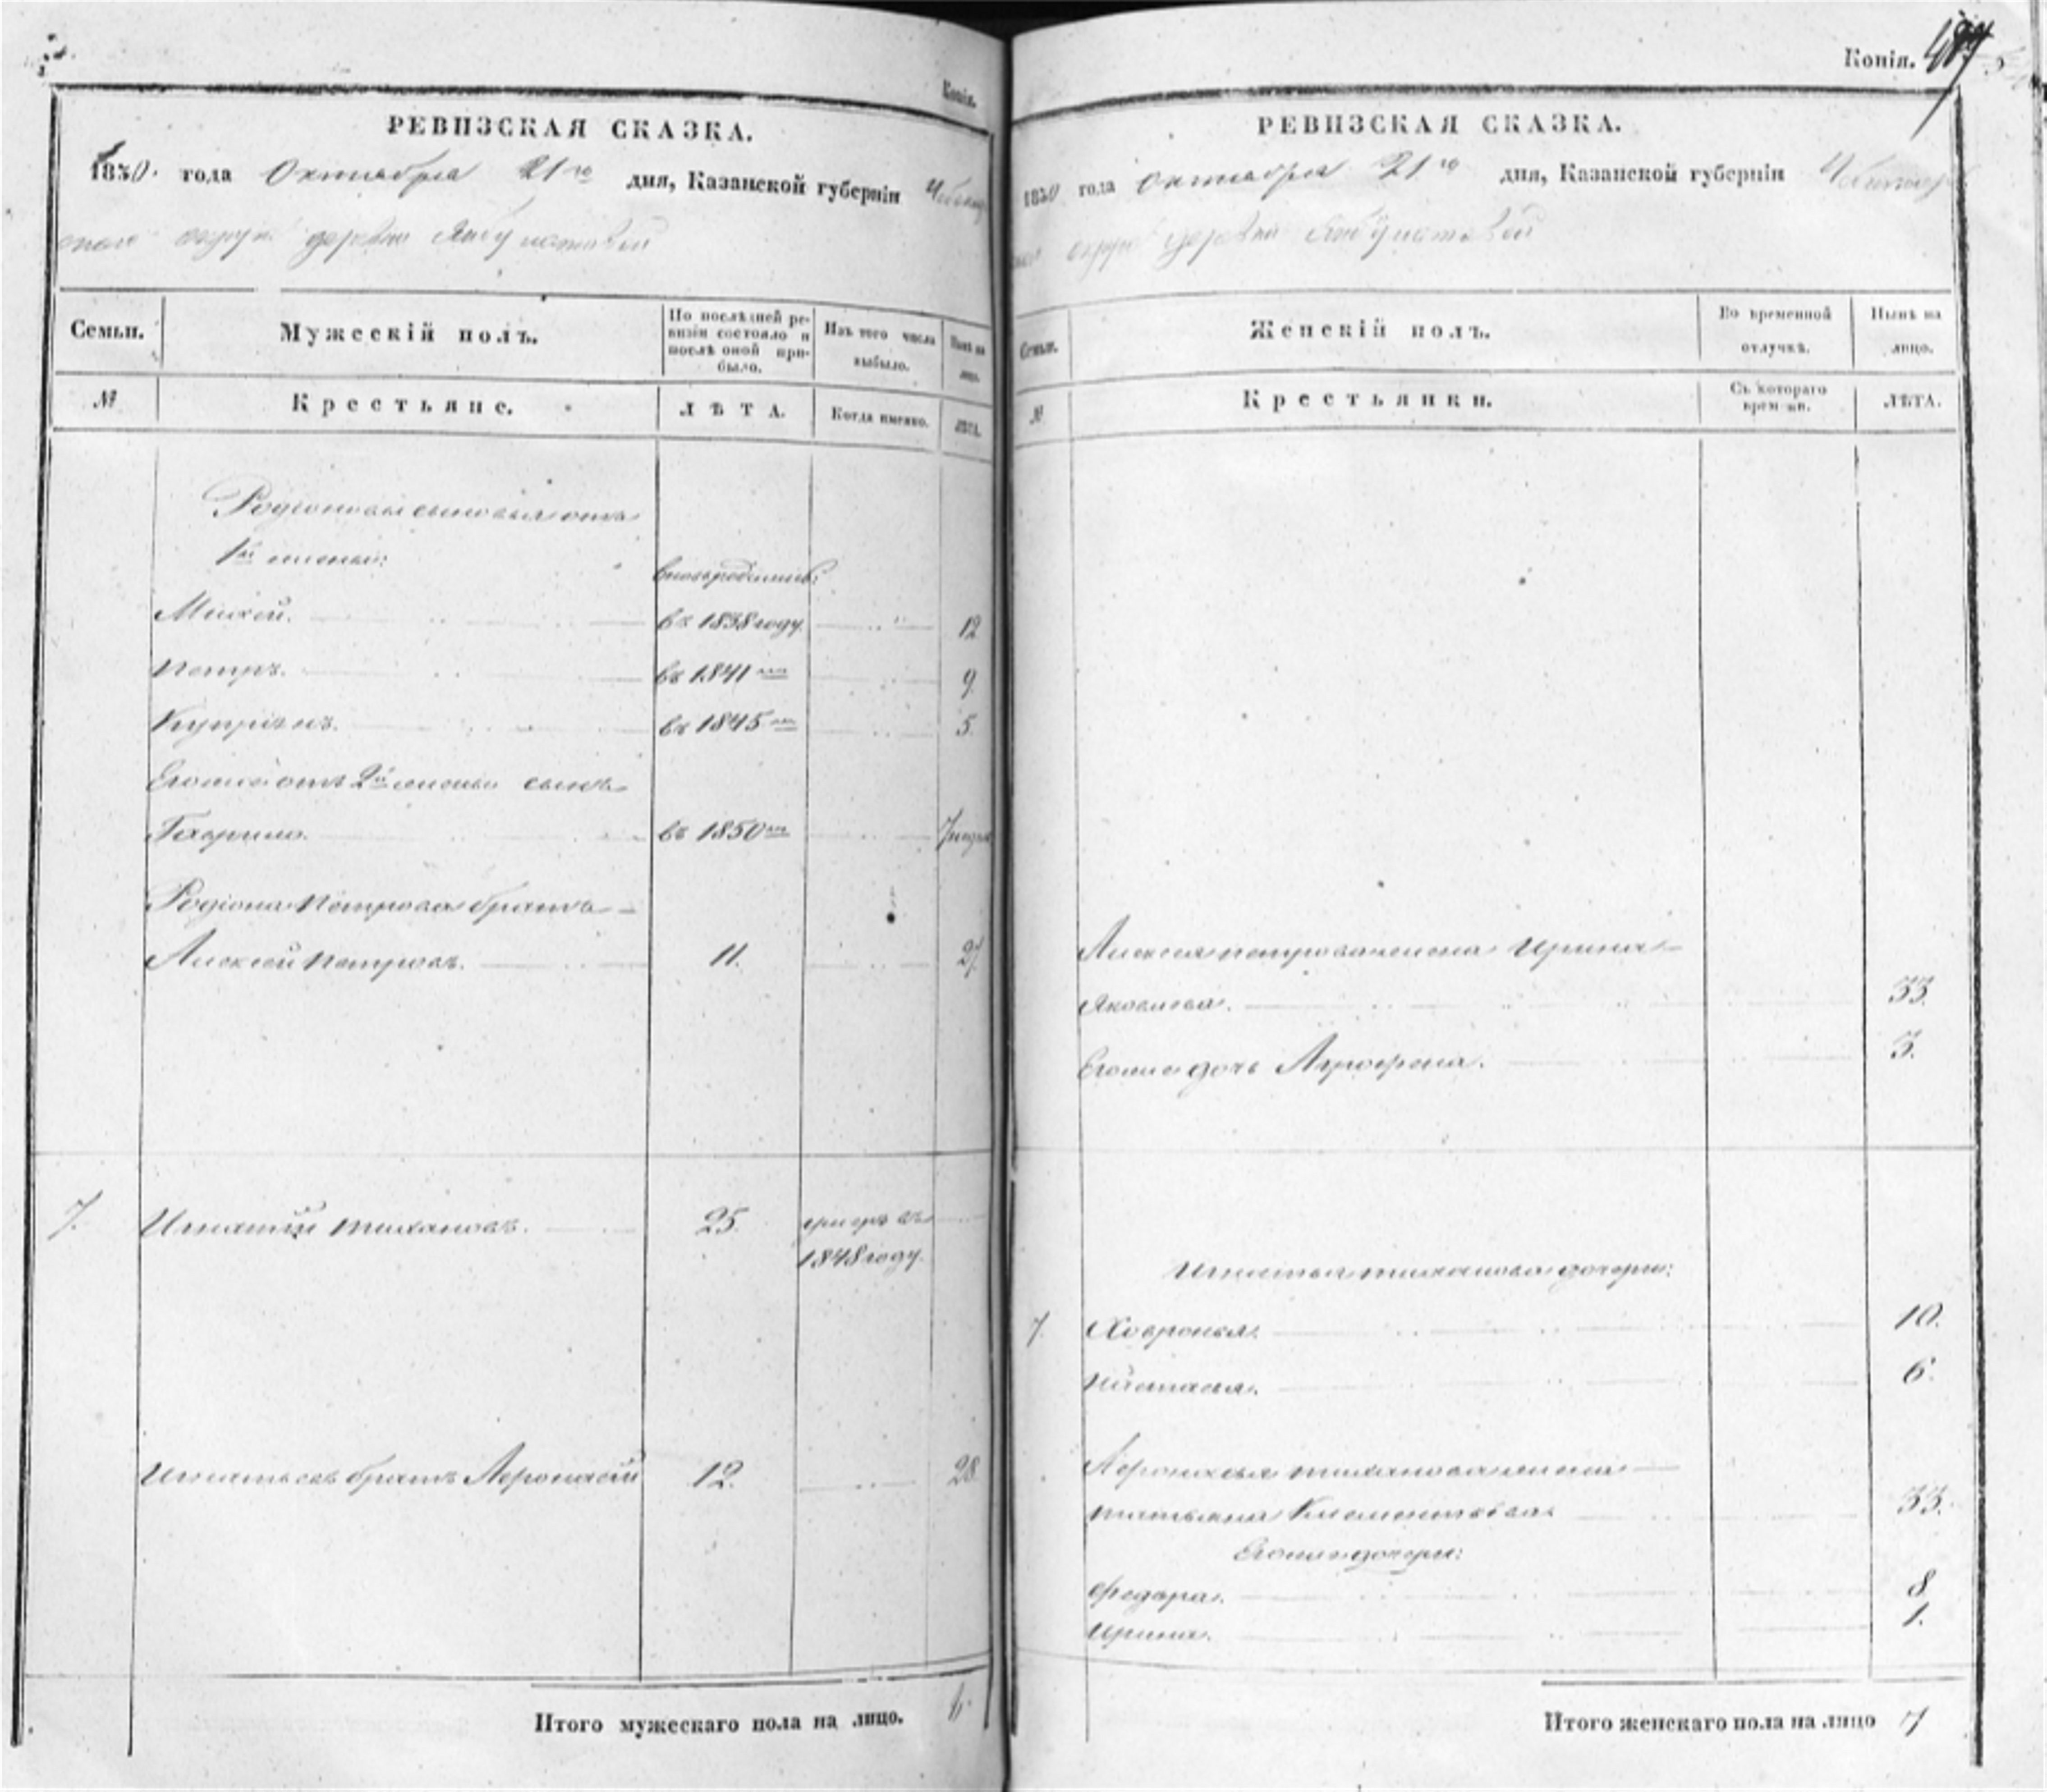 Копія.
РЕВИЗСКАЯ СКАЗКА.
1850. года Октября 21го дня, Казанской губерніи
округи деревни
Семьи.
Мужескій полъ.
По послѣдней ревизіи состояло и послѣ оной прибыло.
Изъ того числа выбыло.
Нынѣ на лицо.
№
Крестьяне.
ЛѢТА.
Когда именно.
ЛѢТА.
Родіоновы сыновья отъ
1й жены:
вновьрожденны:
Михей. въ 1838 году. 12
Петръ. въ 1841м 9.
Купріянъ. въ 1845м 5.
Егоже отъ 2й жены сынъ
въ 1850м 7 недѣл
Родіона Петрова братъ
Алексѣй Петровъ. 11. 27.
7. Игнатій Тихановъ. 25.
1848 году.
Игнатьевъ братъ Афонасій 12. 28
Итого мужескаго пола на лицо. 6.
Копія. 487
РЕВИЗСКАЯ СКАЗКА.
1850 года Октября 21го дня, Казанской губерніи
округи деревни
Семьи.
Женскій полъ.
Во временной отлучкѣ.
Нынѣ на лицо.
№
Крестьянки.
Съ котораго времени.
ЛѢТА.
Алексея Петрова жена Ирина
Яковлева. 33.
Егоже дочь Агрофена. 3.
Игнатья Тиханова дочери:
7. Ховронья. 10.
6.
Афонасья Тиханова жена
Татьяна Климентьева 33.
Егоже дочери:
Федора. 8.
Ирина. 1.
Итого женскаго пола на лицо 7